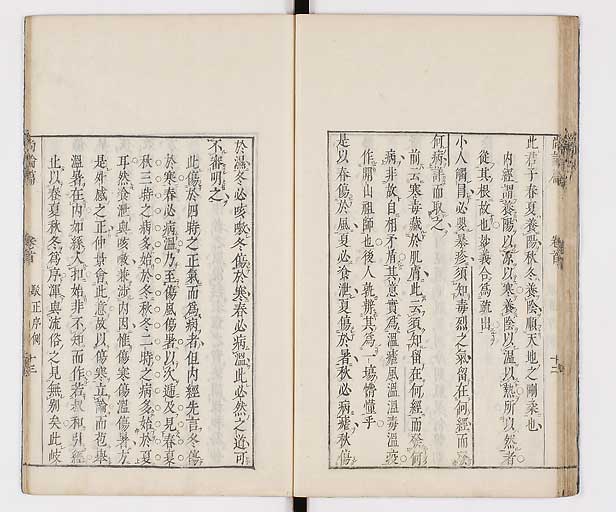 此君子春夏養陽秋冬養陰順天地之剛柔也
內經謂養陽以涼以寒養陰以溫以熱所以然者
從其根故也妙義合爲疏出
小人觸冒必嬰暴疹須知毒烈之氣留在何經而發
何病詳而取之
前云寒毒藏於肌膚此云須知留在何經而發何
病非故自相矛盾其意實爲溫瘧風溫溫毒溫疫
作開山祖師也後人孰辨其爲一場懵懂乎
是以春傷於風夏必飧泄夏傷於暑秋必病瘧秋傷
於濕冬必咳嗽冬傷於寒春必病溫此必然之道可
不審明之
此傷於四時之正氣而爲病者但內經先言冬傷
於寒春必病溫乃至傷風傷暑以次遞及見春夏
秋三時之病多始於冬秋冬二時之病多始於夏
耳然飧泄與咳嗽兼涉內因惟傷寒傷溫傷暑方
是外感之正仲景會此意故以傷寒立論而苞舉
溫暑在內如孫人和始非不知而作若叔和引經
止以春夏秋冬爲序渾與流俗之見無別矣此岐
尚論篇 卷首 駁正序例 十三